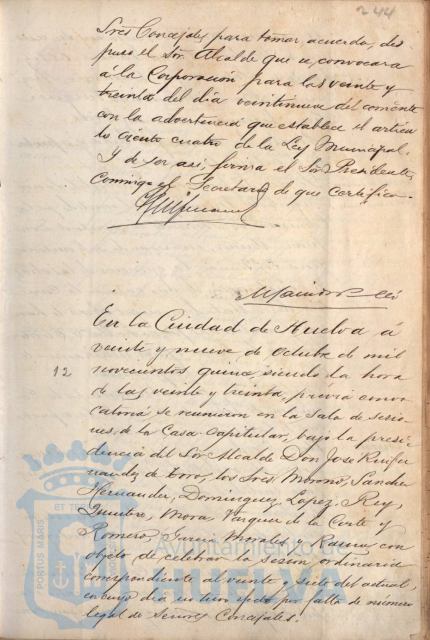 244
Sres Concejales para tomar acuerdo, dis-
puso el Sor. Alcalde que se convocara
á la Corporación para las veinte y
treinta del dia veintinueve del corriente
con la advertencia que establece el articu
lo ciento cuatro de la Ley Municipal.
Y de ser así, firma el Sor Presidente,
conmigo el Secretario de que certifico.
En la Ciudad de Huelva á
veinte y nueve de Octubre de mil
12
novecientos quince, siendo la hora
de las veinte y treinta, prévia convo
catoria se reunieron en la Sala de sesio
nes de la Casa-Capitular, bajo la presi
dencia del Sor Alcalde Don José
de los Sres Moreno, Sanchez
Hernandez, Dominguez, Lopez, Rey,
Mora, Vazquez de la Corte y
Romero, Garcia Morales y con
objeto de celebrar la sesion ordinaria
correspondiente al veinte y siete del actual,
en cuyo dia no tuvo efecto por falta de número
legal de Señores Concejales.
PORTUS MARIS ET TE
Ayuntamiento de
HUELVA